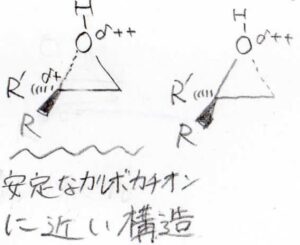 H H
O δ++ O δ++
R' δ+ R'
R R
安定なカルボカチオン
に近い構造